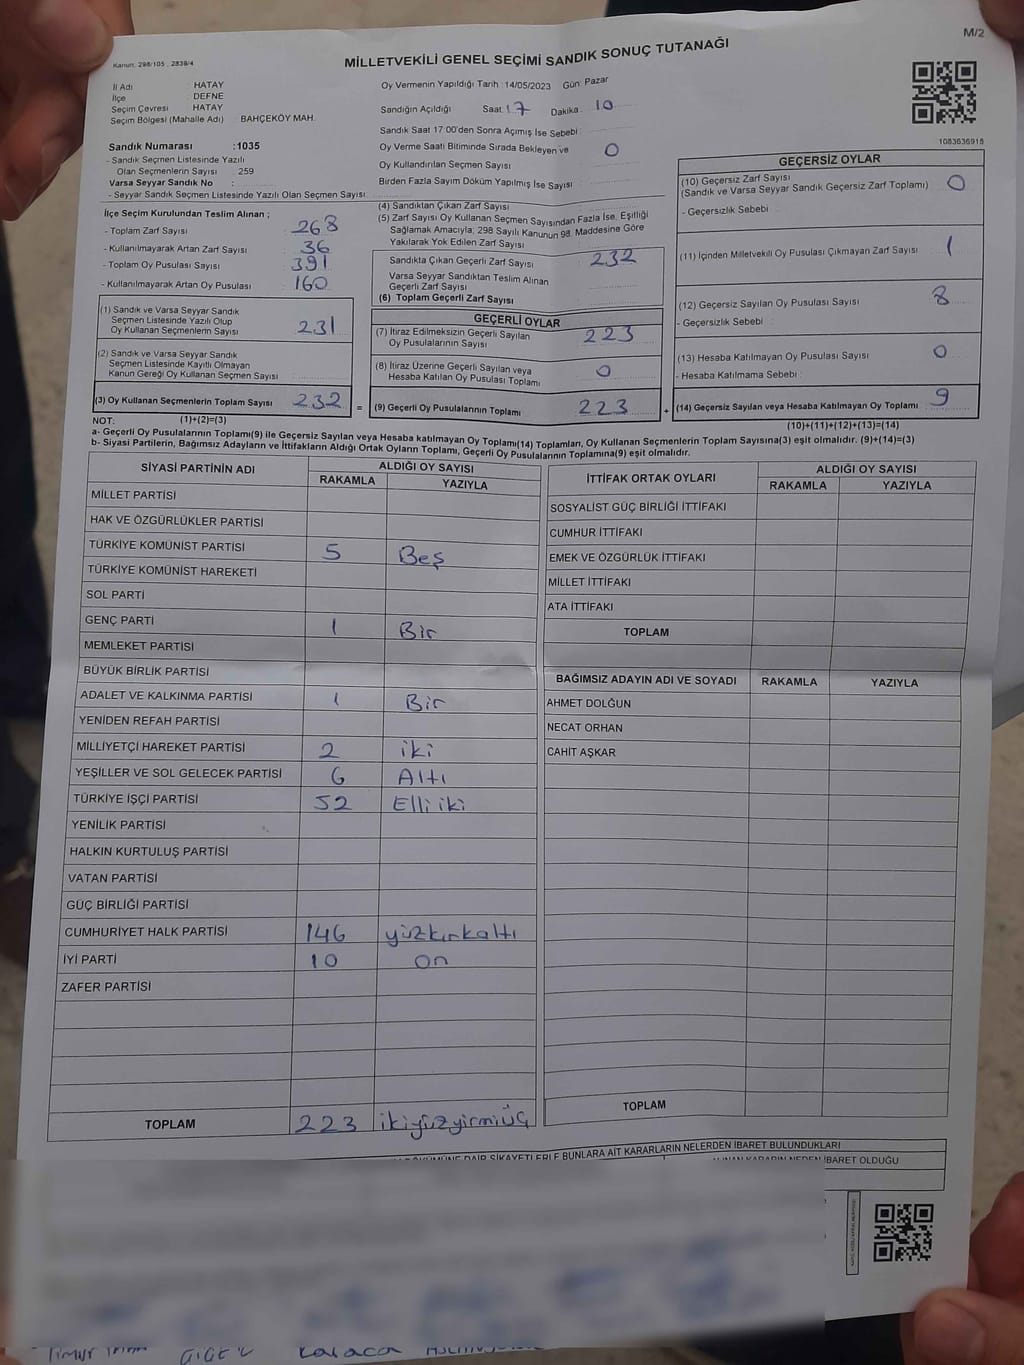 M/2
Kanun: 298/105 2839/4
MİLLETVEKİLİ GENEL SEÇİMİ SANDIK SONUÇ TUTANAĞI
İl Adı HATAY
İlçe DEFNE
Seçim Çevresi HATAY
Seçim Bölgesi (Mahalle Adı) BAHÇEKÖY MAH.
Sandık Numarası :1035
- Sandık Seçmen Listesinde Yazılı
Olan Seçmenlerin Sayısı 259
Varsa Seyyar Sandık No :
- Seyyar Sandık Seçmen Listesinde Yazılı Olan Seçmen Sayısı
Oy Vermenin Yapıldığı Tarih : 14/05/2023 Gün: Pazar
Sandığın Açıldığı Saat: 17 Dakika: 10
Sandık Saat 17:00'den Sonra Açımış İse Sebebi :
Oy Verme Saati Bitiminde Sırada Bekleyen ve 0
Oy Kullandırılan Seçmen Sayısı
Birden Fazla Sayım Döküm Yapılmış İse Sayısı
1083636915
İlçe Seçim Kurulundan Teslim Alınan ;
- Toplam Zarf Sayısı : 268
- Kullanılmayarak Artan Zarf Sayısı : 36
- Toplam Oy Pusulası Sayısı : 391
- Kullanılmayarak Artan Oy Pusulası : 160
(1) Sandık ve Varsa Seyyar Sandık
Seçmen Listesinde Yazılı Olup
Oy Kullanan Seçmenlerin Sayısı 231
(2) Sandık ve Varsa Seyyar Sandık
Seçmen Listesinde Kayıtlı Olmayan
Kanun Gereği Oy Kullanan Seçmen Sayısı
(3) Oy Kullanan Seçmenlerin Toplam Sayısı 232 =
(4) Sandıktan Çıkan Zarf Sayısı
(5) Zarf Sayısı Oy Kullanan Seçmen Sayısından Fazla İse, Eşitliği
Sağlamak Amacıyla; 298 Sayılı Kanunun 98. Maddesine Göre
Yakılarak Yok Edilen Zarf Sayısı
Sandıkta Çıkan Geçerli Zarf Sayısı 232
Varsa Seyyar Sandıktan Teslim Alınan
Geçerli Zarf Sayısı
(6) Toplam Geçerli Zarf Sayısı
GEÇERLİ OYLAR
(7) İtiraz Edilmeksizin Geçerli Sayılan
Oy Pusulalarının Sayısı 223
(8) İtiraz Üzerine Geçerli Sayılan veya
Hesaba Katılan Oy Pusulası Toplamı 0
(9) Geçerli Oy Pusulalarının Toplamı 223 +
GEÇERSİZ OYLAR
(10) Geçersiz Zarf Sayısı
(Sandık ve Varsa Seyyar Sandık Geçersiz Zarf Toplamı) 0
- Geçersizlik Sebebi :
(11) İçinden Milletvekili Oy Pusulası Çıkmayan Zarf Sayısı 1
(12) Geçersiz Sayılan Oy Pusulası Sayısı 8
- Geçersizlik Sebebi :
(13) Hesaba Katılmayan Oy Pusulası Sayısı 0
- Hesaba Katılmama Sebebi :
(14) Geçersiz Sayılan veya Hesaba Katılmayan Oy Toplamı 9
NOT: (1)+(2)=(3) (10)+(11)+(12)+(13)=(14)
a- Geçerli Oy Pusulalarının Toplamı(9) ile Geçersiz Sayılan veya Hesaba katılmayan Oy Toplamı(14) Toplamları, Oy Kullanan Seçmenlerin Toplam Sayısına(3) eşit olmalıdır. (9)+(14)=(3)
b- Siyasi Partilerin, Bağımsız Adayların ve İttifakların Aldığı Ortak Oyların Toplamı, Geçerli Oy Pusulalarının Toplamına(9) eşit olmalıdır.
SİYASİ PARTİNİN ADI ALDIĞI OY SAYISI
RAKAMLA YAZIYLA
MİLLET PARTİSİ
HAK VE ÖZGÜRLÜKLER PARTİSİ
TÜRKİYE KOMÜNİST PARTİSİ 5 Beş
TÜRKİYE KOMÜNİST HAREKETİ
SOL PARTİ
GENÇ PARTİ 1 Bir
MEMLEKET PARTİSİ
BÜYÜK BİRLİK PARTİSİ
ADALET VE KALKINMA PARTİSİ 1 Bir
YENİDEN REFAH PARTİSİ
MİLLİYETÇİ HAREKET PARTİSİ 2 iki
YEŞİLLER VE SOL GELECEK PARTİSİ 6 Altı
TÜRKİYE İŞÇİ PARTİSİ 52 Elli iki
YENİLİK PARTİSİ
HALKIN KURTULUŞ PARTİSİ
VATAN PARTİSİ
GÜÇ BİRLİĞİ PARTİSİ
CUMHURİYET HALK PARTİSİ 146 yüzkırkaltı
İYİ PARTİ 10 on
ZAFER PARTİSİ
TOPLAM 223 ikiyüzyirmiüç
İTTİFAK ORTAK OYLARI ALDIĞI OY SAYISI
RAKAMLA YAZIYLA
SOSYALİST GÜÇ BİRLİĞİ İTTİFAKI
CUMHUR İTTİFAKI
EMEK VE ÖZGÜRLÜK İTTİFAKI
MİLLET İTTİFAKI
ATA İTTİFAKI
TOPLAM
BAĞIMSIZ ADAYIN ADI VE SOYADI RAKAMLA YAZIYLA
AHMET DOLĞUN
NECAT ORHAN
CAHİT AŞKAR
TOPLAM
DAİR ŞİKAYETLERLE BUNLARA AİT KARARLARIN NELERDEN İBARET BULUNDUKLARI
KARARIN NEDEN İBARET OLDUĞU
Karaca